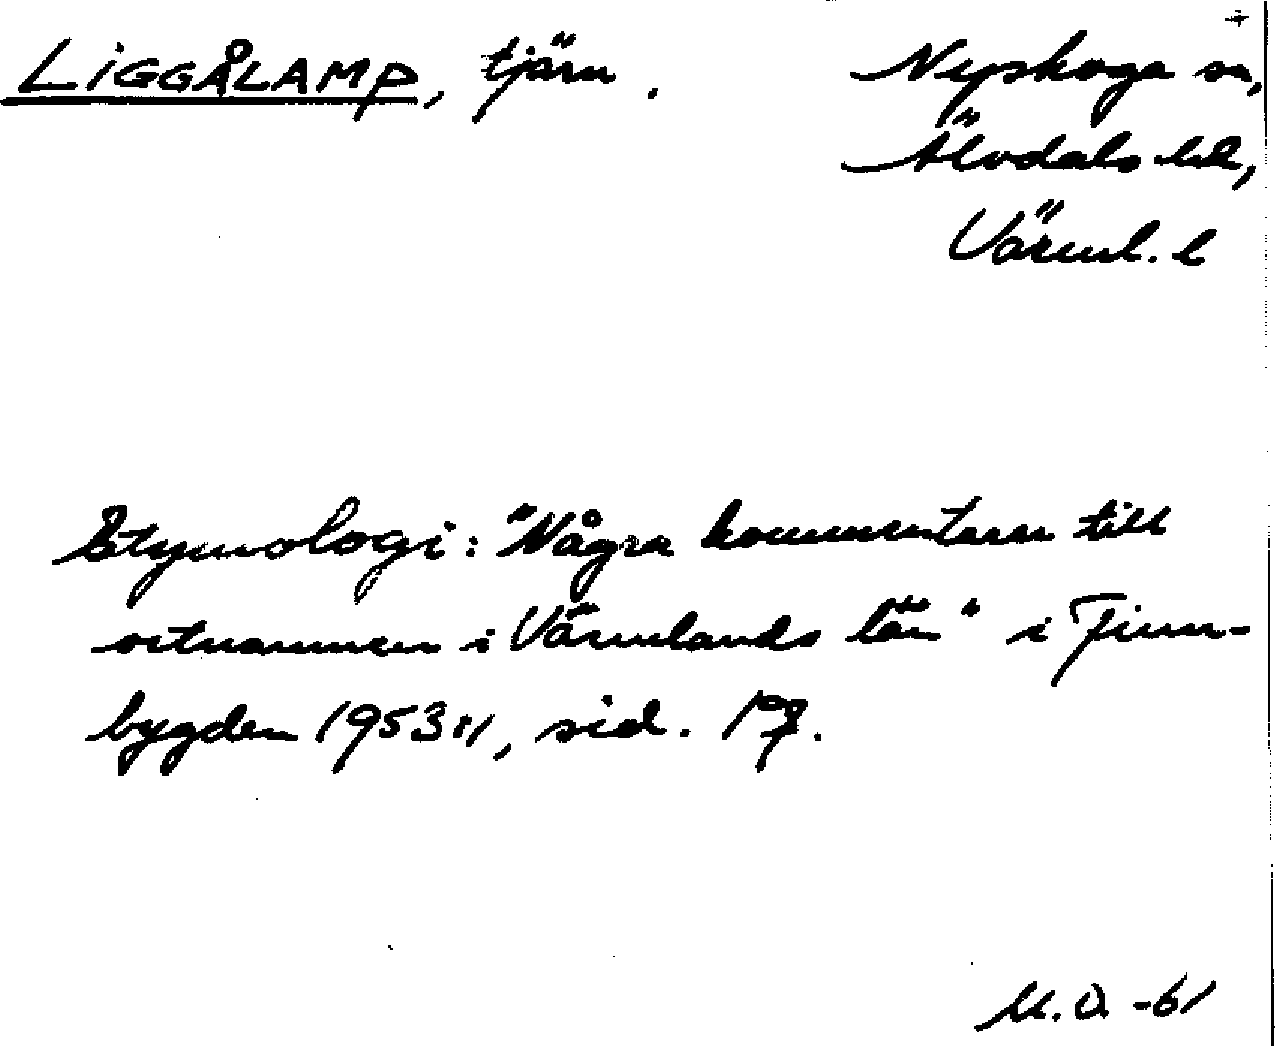 LIGGÅLAMP, tjärn. Nyskoga sn,
Älvdals hd,
Värml. l
Etymologi: "Några kommentarer till
ortnamnen i Värmlands län" i Finn-
bygden 1953:1, sid. 17.
M.O. -61